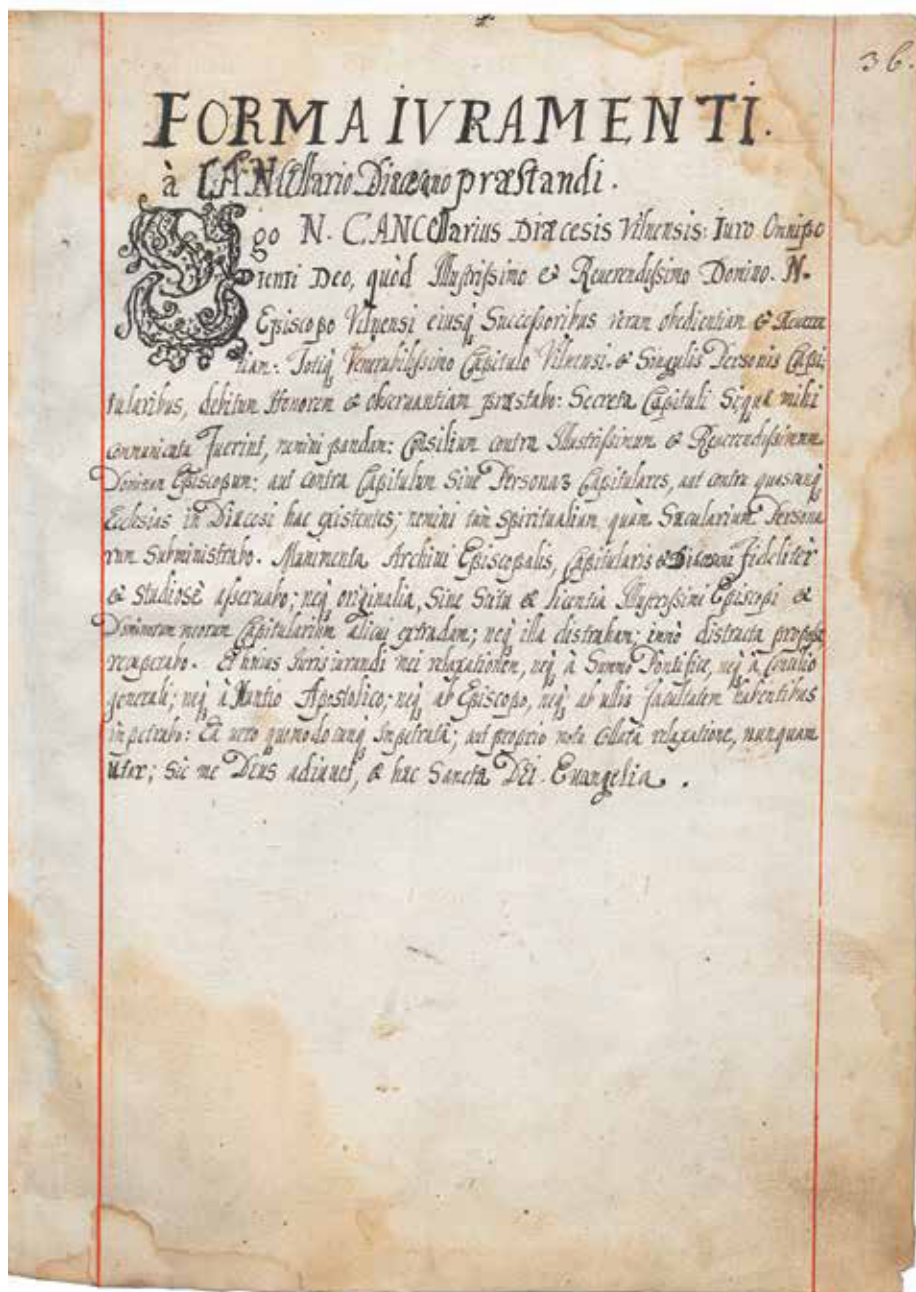 36.
FORMA IVRAMENTI.
à CANCellario Diæcesano præstandi.
Ego N. CANCellarius Diæcesis Vilnensis: Iuro Omnipo
tenti Deo, quòd Illustrissimo & Reuerendissimo Domino. N.
Episcopo Vilnensi eiusq₃ Successoribus veram obedientiam & Reueren
tiam: Totiq₃ Venerabilissimo Capitulo Vilnensi. & Singulis Personis Capi;
tularibus, debitum Honorem & obseruantiam præstabo: Secreta Capituli Siquæ mihi
communicata fuerint, nemini pandam: Consilium contra Illustrissimum & Reuerendissimum
Dominum Episcopum: aut contra Capitulum Siue Personas Capitulares, aut contra quascunq₃
Ecclesias in Diæcesi hac existentes; nemini tàm Spiritualium quàm Sæcularium Persona
rum Subministrabo. Munimenta Archiui Episcopalis, Capitularis & Diæcesani fideliter
& studiosè asseruabo; neq₃ originalia, Sine Scitu & licentia Illustrissimi Episcopi &
Dominorum meorum Capitularium alicui extradam; neq₃ illa distraham; immò distracta pro posse
recuperabo. Et huius Iurisiurandi mei relaxationem, neq₃ à Summo Pontifice, neq₃ à Concilio
generali; neq₃ à Nuntio Apostolico; neq₃ ab Episcopo, neq₃ ab ullis facultatem habentibus
impetrabo: Ea uero quomodocunq₃ Impetrata; aut proprio motu Collata relaxatione, nunquam
Utar; Sic me Deus adiuuet, & hæc Sancta Dei Euangelia.